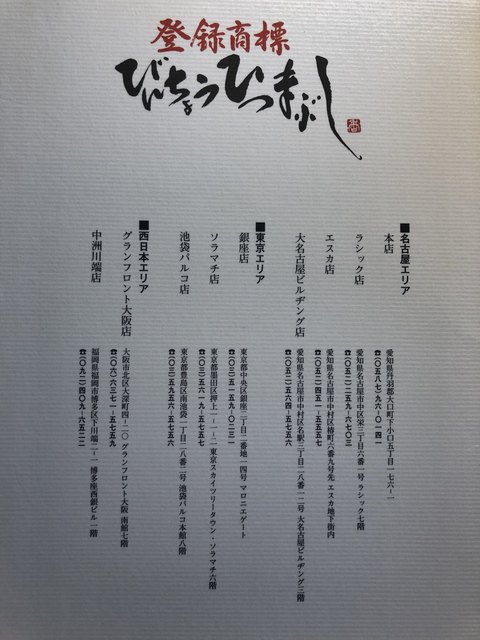 登録商標
びんちょうひつまぶし
■名古屋エリア
本店
愛知県丹羽郡大口町下小口五丁目一七六-一
☎(〇五八七)九六-〇一四一
ラシック店
愛知県名古屋市中区栄三丁目六番一号 ラシック七階
☎(〇五二)二五九-六七〇三
エスカ店
愛知県名古屋市中村区椿町六番九号先 エスカ地下街内
☎(〇五二)四五一-五五五七
大名古屋ビルヂング店
愛知県名古屋市中村区名駅三丁目二八番一二号 大名古屋ビルヂング三階
☎(〇五二)五六四-五七五六
■東京エリア
銀座店
東京都中央区銀座二丁目二番地一四号 マロニエゲート
☎(〇三)五一五九-〇二三一
ソラマチ店
東京都墨田区押上一-一-二 東京スカイツリータウン・ソラマチ六階
☎(〇三)五六一九-五七五五
池袋パルコ店
東京都豊島区南池袋一丁目二八番二号 池袋パルコ本館八階
☎(〇三)五九五六-五七五六
■西日本エリア
グランフロント大阪店
大阪市北区大深町四-二〇 グランフロント大阪 南館七階
☎(〇六)六三七一-五七五九
中洲川端店
福岡県福岡市博多区下川端二-一 博多座西銀ビル一階
☎(〇九二)四〇九-六五二二